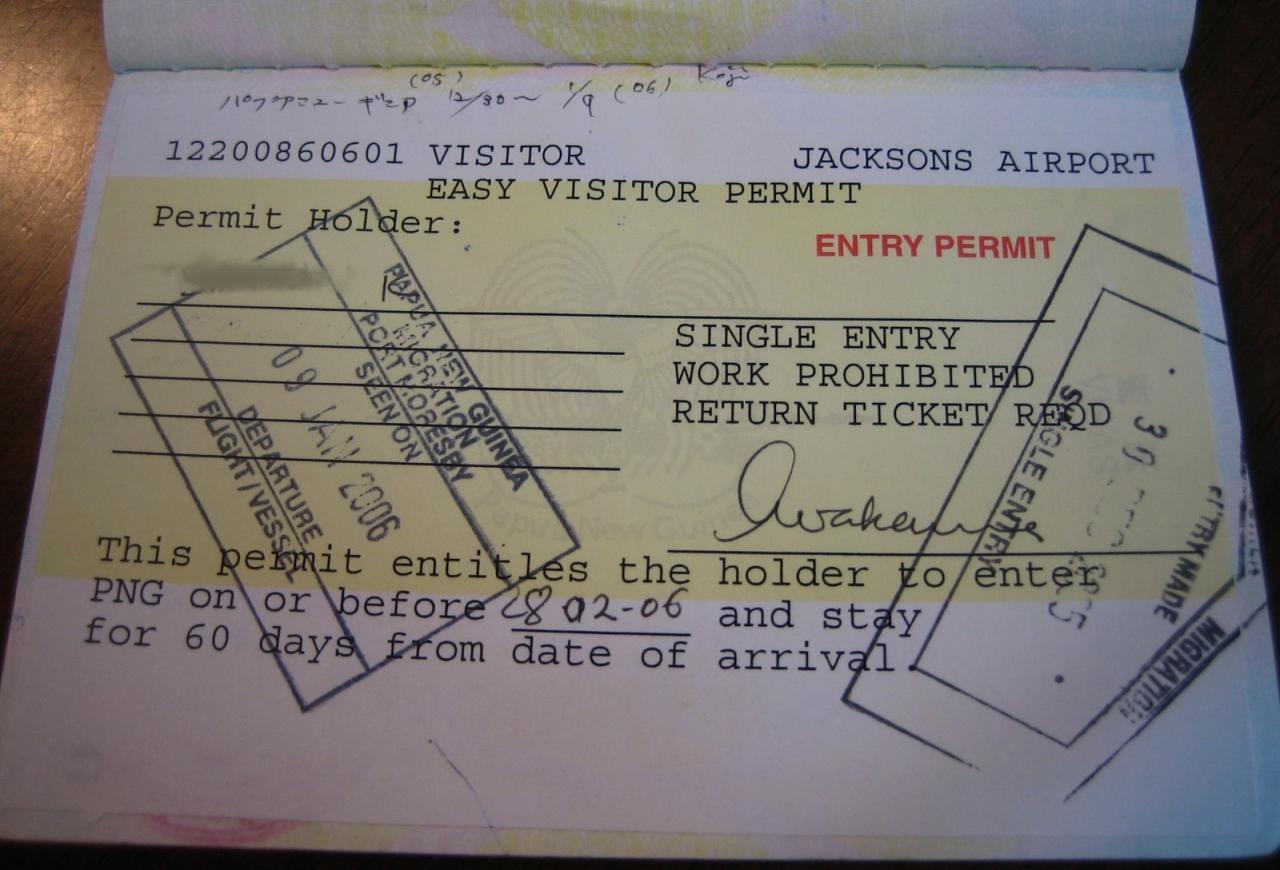 (05) (06) Koji
パプアニューギニア 12/30〜 1/9
12200860601 VISITOR JACKSONS AIRPORT
EASY VISITOR PERMIT
Permit Holder:
ENTRY PERMIT
SINGLE ENTRY
WORK PROHIBITED
RETURN TICKET REQD
Papua New Guinea
This permit entitles the holder to enter
PNG on or before 28 02-06 and stay
for 60 days from date of arrival.
PAPUA NEW GUINEA
MIGRATION
PORT MORESBY
SEEN ON
09 JAN 2006
DEPARTURE
FLIGHT/VESSEL
SINGLE ENTRY
30
ENTRY MADE
MIGRATION